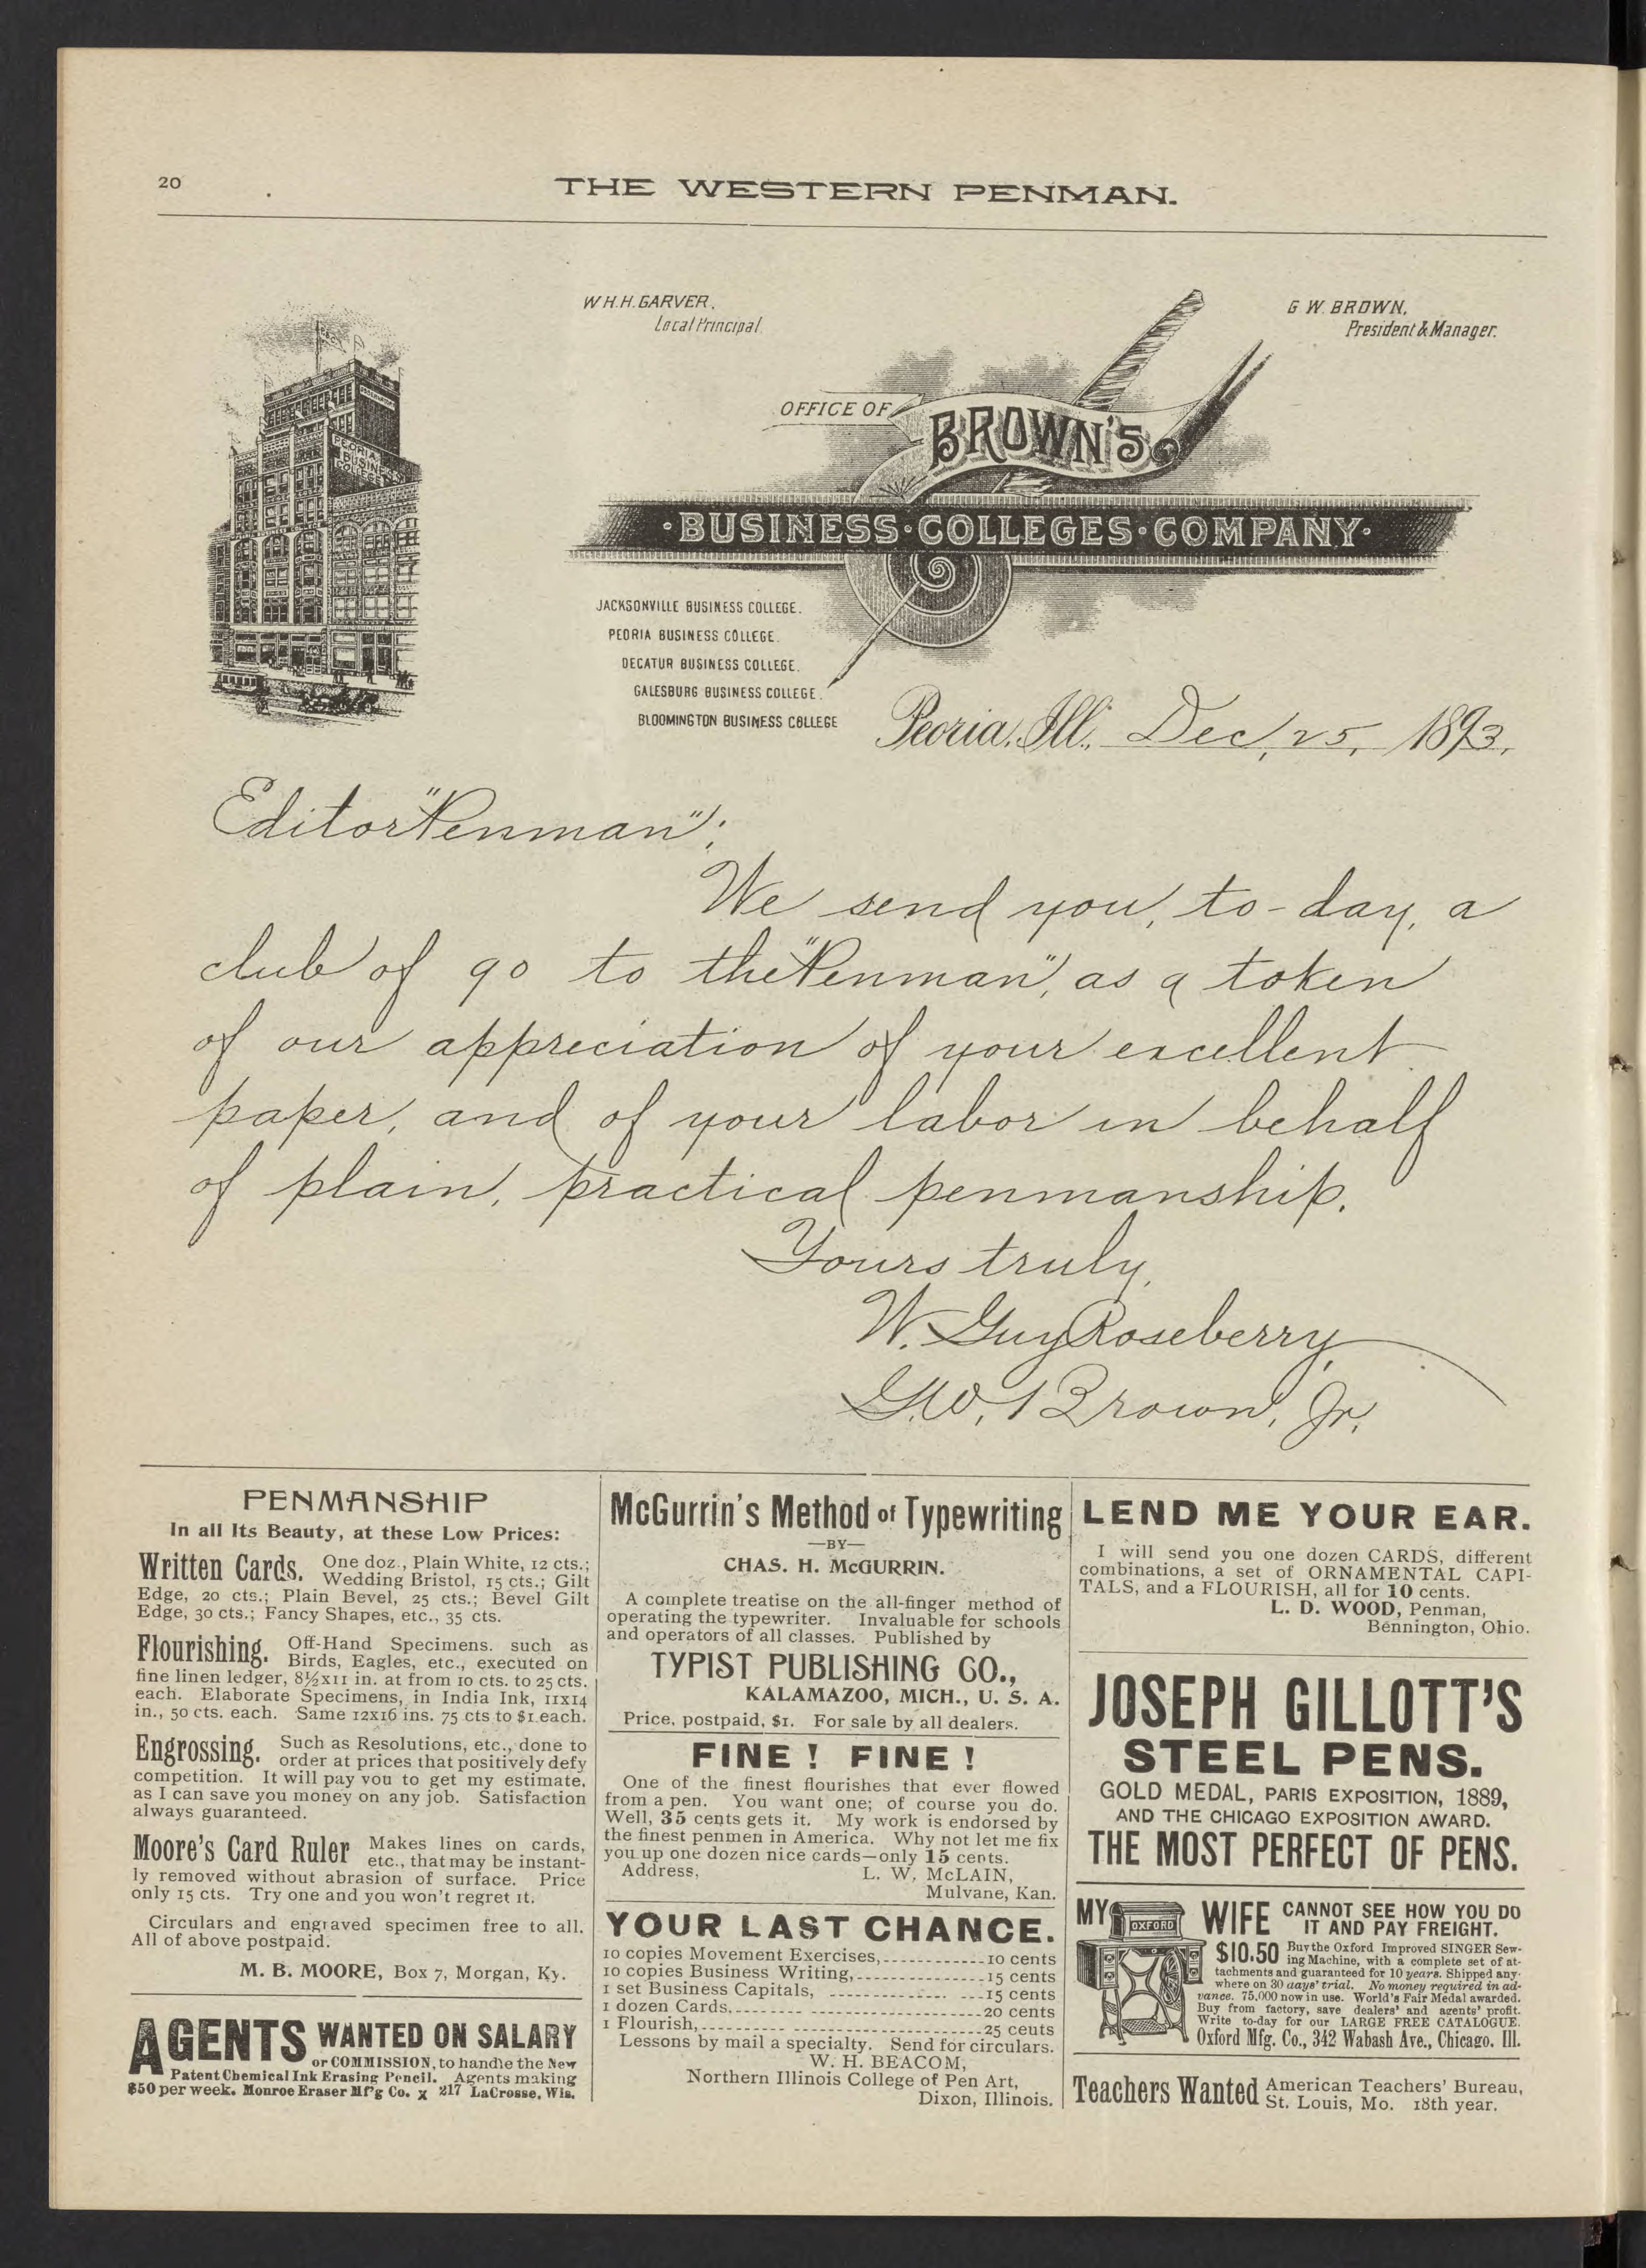 20
THE WESTERN PENMAN.
W H. H. GARVER,
Local Principal
G W. BROWN,
President & Manager.
OFFICE OF
BROWN'S
·BUSINESS·COLLEGES·COMPANY·
PEORIA
BUSINESS
COLLEGE
JACKSONVILLE BUSINESS COLLEGE.
PEORIA BUSINESS COLLEGE.
DECATUR BUSINESS COLLEGE.
GALESBURG BUSINESS COLLEGE.
BLOOMINGTON BUSINESS COLLEGE
Peoria, Ill., Dec, 25, 1893,
Editor "Penman";
We send you, to-day, a
club of 90 to the "Penman", as a token
of our appreciation of your excellent
paper, and of your labor in behalf
of plain, practical penmanship.
Yours truly,
W. Guy Roseberry,
G.W. Brown, Jr.
PENMANSHIP
In all Its Beauty, at these Low Prices:
Written Cards. One doz., Plain White, 12 cts.;
Wedding Bristol, 15 cts.; Gilt
Edge, 20 cts.; Plain Bevel, 25 cts.; Bevel Gilt
Edge, 30 cts.; Fancy Shapes, etc., 35 cts.
Flourishing. Off-Hand Specimens. such as
Birds, Eagles, etc., executed on
fine linen ledger, 8½x11 in. at from 10 cts. to 25 cts.
each. Elaborate Specimens, in India Ink, 11x14
in., 50 cts. each. Same 12x16 ins. 75 cts to $1 each.
Engrossing. Such as Resolutions, etc., done to
order at prices that positively defy
competition. It will pay you to get my estimate,
as I can save you money on any job. Satisfaction
always guaranteed.
Moore's Card Ruler Makes lines on cards,
etc., that may be instant-
ly removed without abrasion of surface. Price
only 15 cts. Try one and you won't regret it.
Circulars and engraved specimen free to all.
All of above postpaid.
M. B. MOORE, Box 7, Morgan, Ky.
AGENTS WANTED ON SALARY
or COMMISSION, to handle the New
Patent Chemical Ink Erasing Pencil. Agents making
$50 per week. Monroe Eraser Mf'g Co. x 217 LaCrosse, Wis.
McGurrin's Method of Typewriting
—BY—
CHAS. H. McGURRIN.
A complete treatise on the all-finger method of
operating the typewriter. Invaluable for schools
and operators of all classes. Published by
TYPIST PUBLISHING CO.,
KALAMAZOO, MICH., U. S. A.
Price, postpaid, $1. For sale by all dealers.
FINE! FINE!
One of the finest flourishes that ever flowed
from a pen. You want one; of course you do.
Well, 35 cents gets it. My work is endorsed by
the finest penmen in America. Why not let me fix
you up one dozen nice cards—only 15 cents.
Address, L. W. McLAIN,
Mulvane, Kan.
YOUR LAST CHANCE.
10 copies Movement Exercises,------------10 cents
10 copies Business Writing,---------------15 cents
1 set Business Capitals, ----------------15 cents
1 dozen Cards,---------------------------20 cents
1 Flourish,-------------------------------25 ceuts
Lessons by mail a specialty. Send for circulars.
W. H. BEACOM,
Northern Illinois College of Pen Art,
Dixon, Illinois.
LEND ME YOUR EAR.
I will send you one dozen CARDS, different
combinations, a set of ORNAMENTAL CAPI-
TALS, and a FLOURISH, all for 10 cents.
L. D. WOOD, Penman,
Bennington, Ohio.
JOSEPH GILLOTT'S
STEEL PENS.
GOLD MEDAL, PARIS EXPOSITION, 1889,
AND THE CHICAGO EXPOSITION AWARD.
THE MOST PERFECT OF PENS.
MY OXFORD WIFE CANNOT SEE HOW YOU DO
IT AND PAY FREIGHT.
$10.50 Buy the Oxford Improved SINGER Sew-
ing Machine, with a complete set of at-
tachments and guaranteed for 10 years. Shipped any-
where on 30 days' trial. No money required in ad-
vance. 75,000 now in use. World's Fair Medal awarded.
Buy from factory, save dealers' and agents' profit.
Write to-day for our LARGE FREE CATALOGUE.
Oxford Mfg. Co., 342 Wabash Ave., Chicago. Ill.
Teachers Wanted American Teachers' Bureau,
St. Louis, Mo. 18th year.